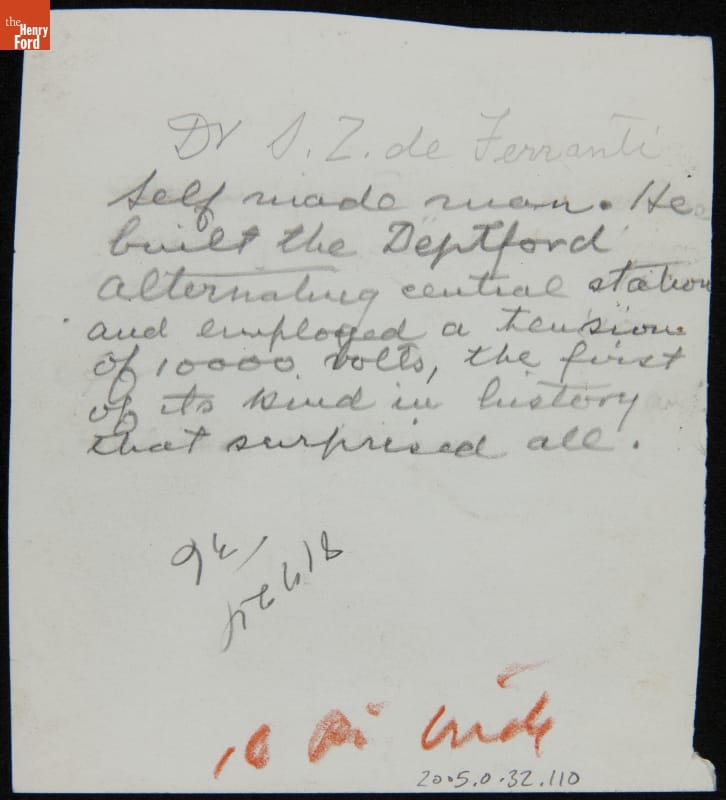 the
Henry
Ford
Dr S. Z. de Ferranti
Self made man. He
built the Deptford
alternating central station
and employed a tension
of 10000 volts, the first
of its kind in history
that surprised all.
2005.0.32.110